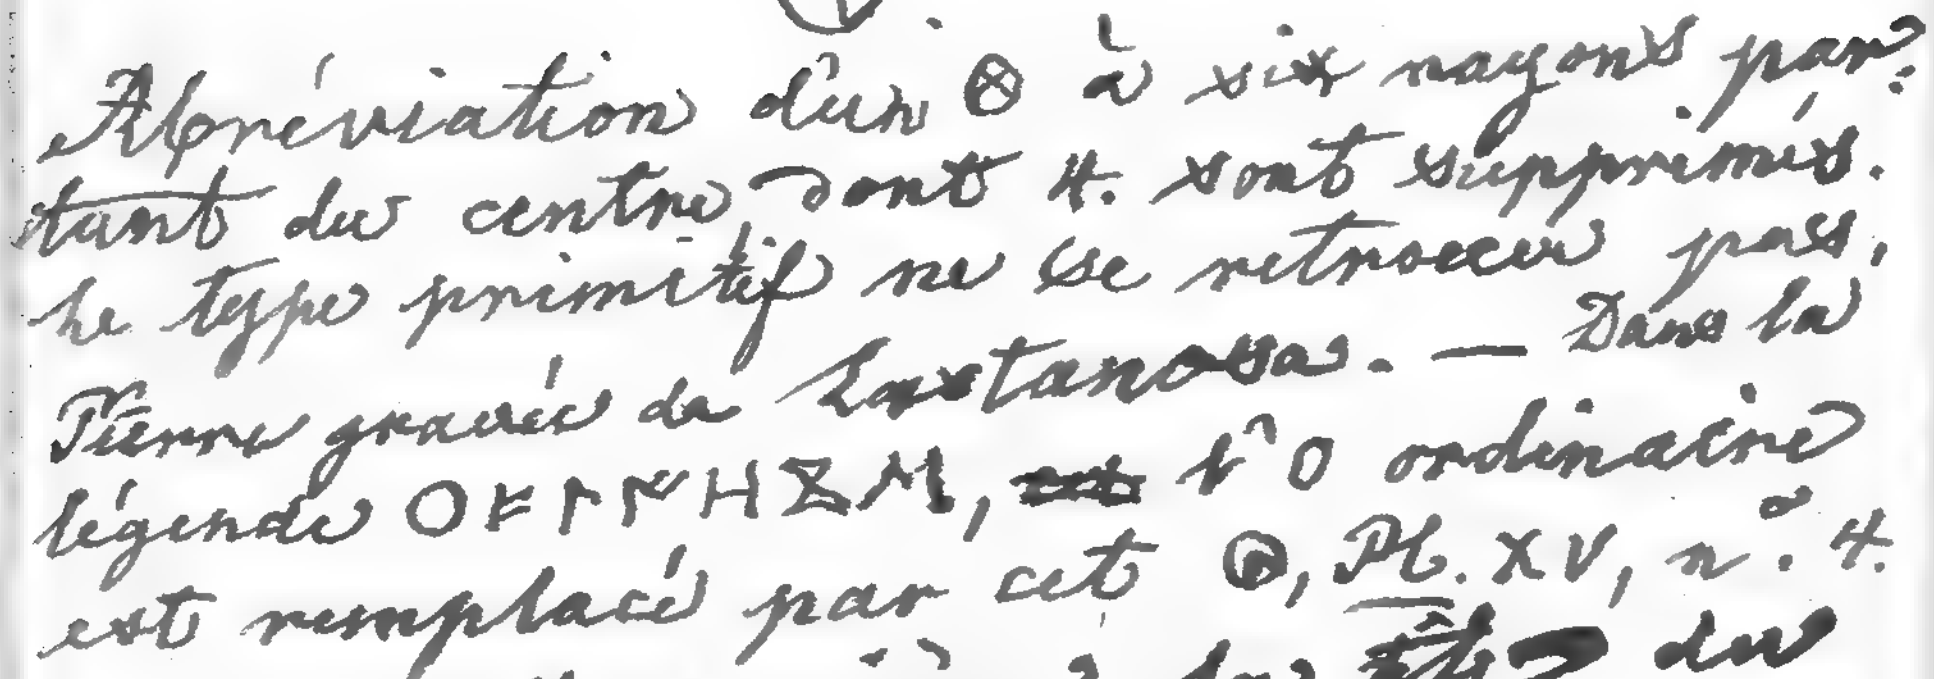 Abréviation d'un ⊗ à six rayons par-
tant du centre, dont 4. sont supprimés.
Le type primitif ne se retrouve pas,
Pierre gravée de Lastanosa. — Dans la
légende O, l'O ordinaire
est remplacé par cet, Pl. XV, n.° 4.
du